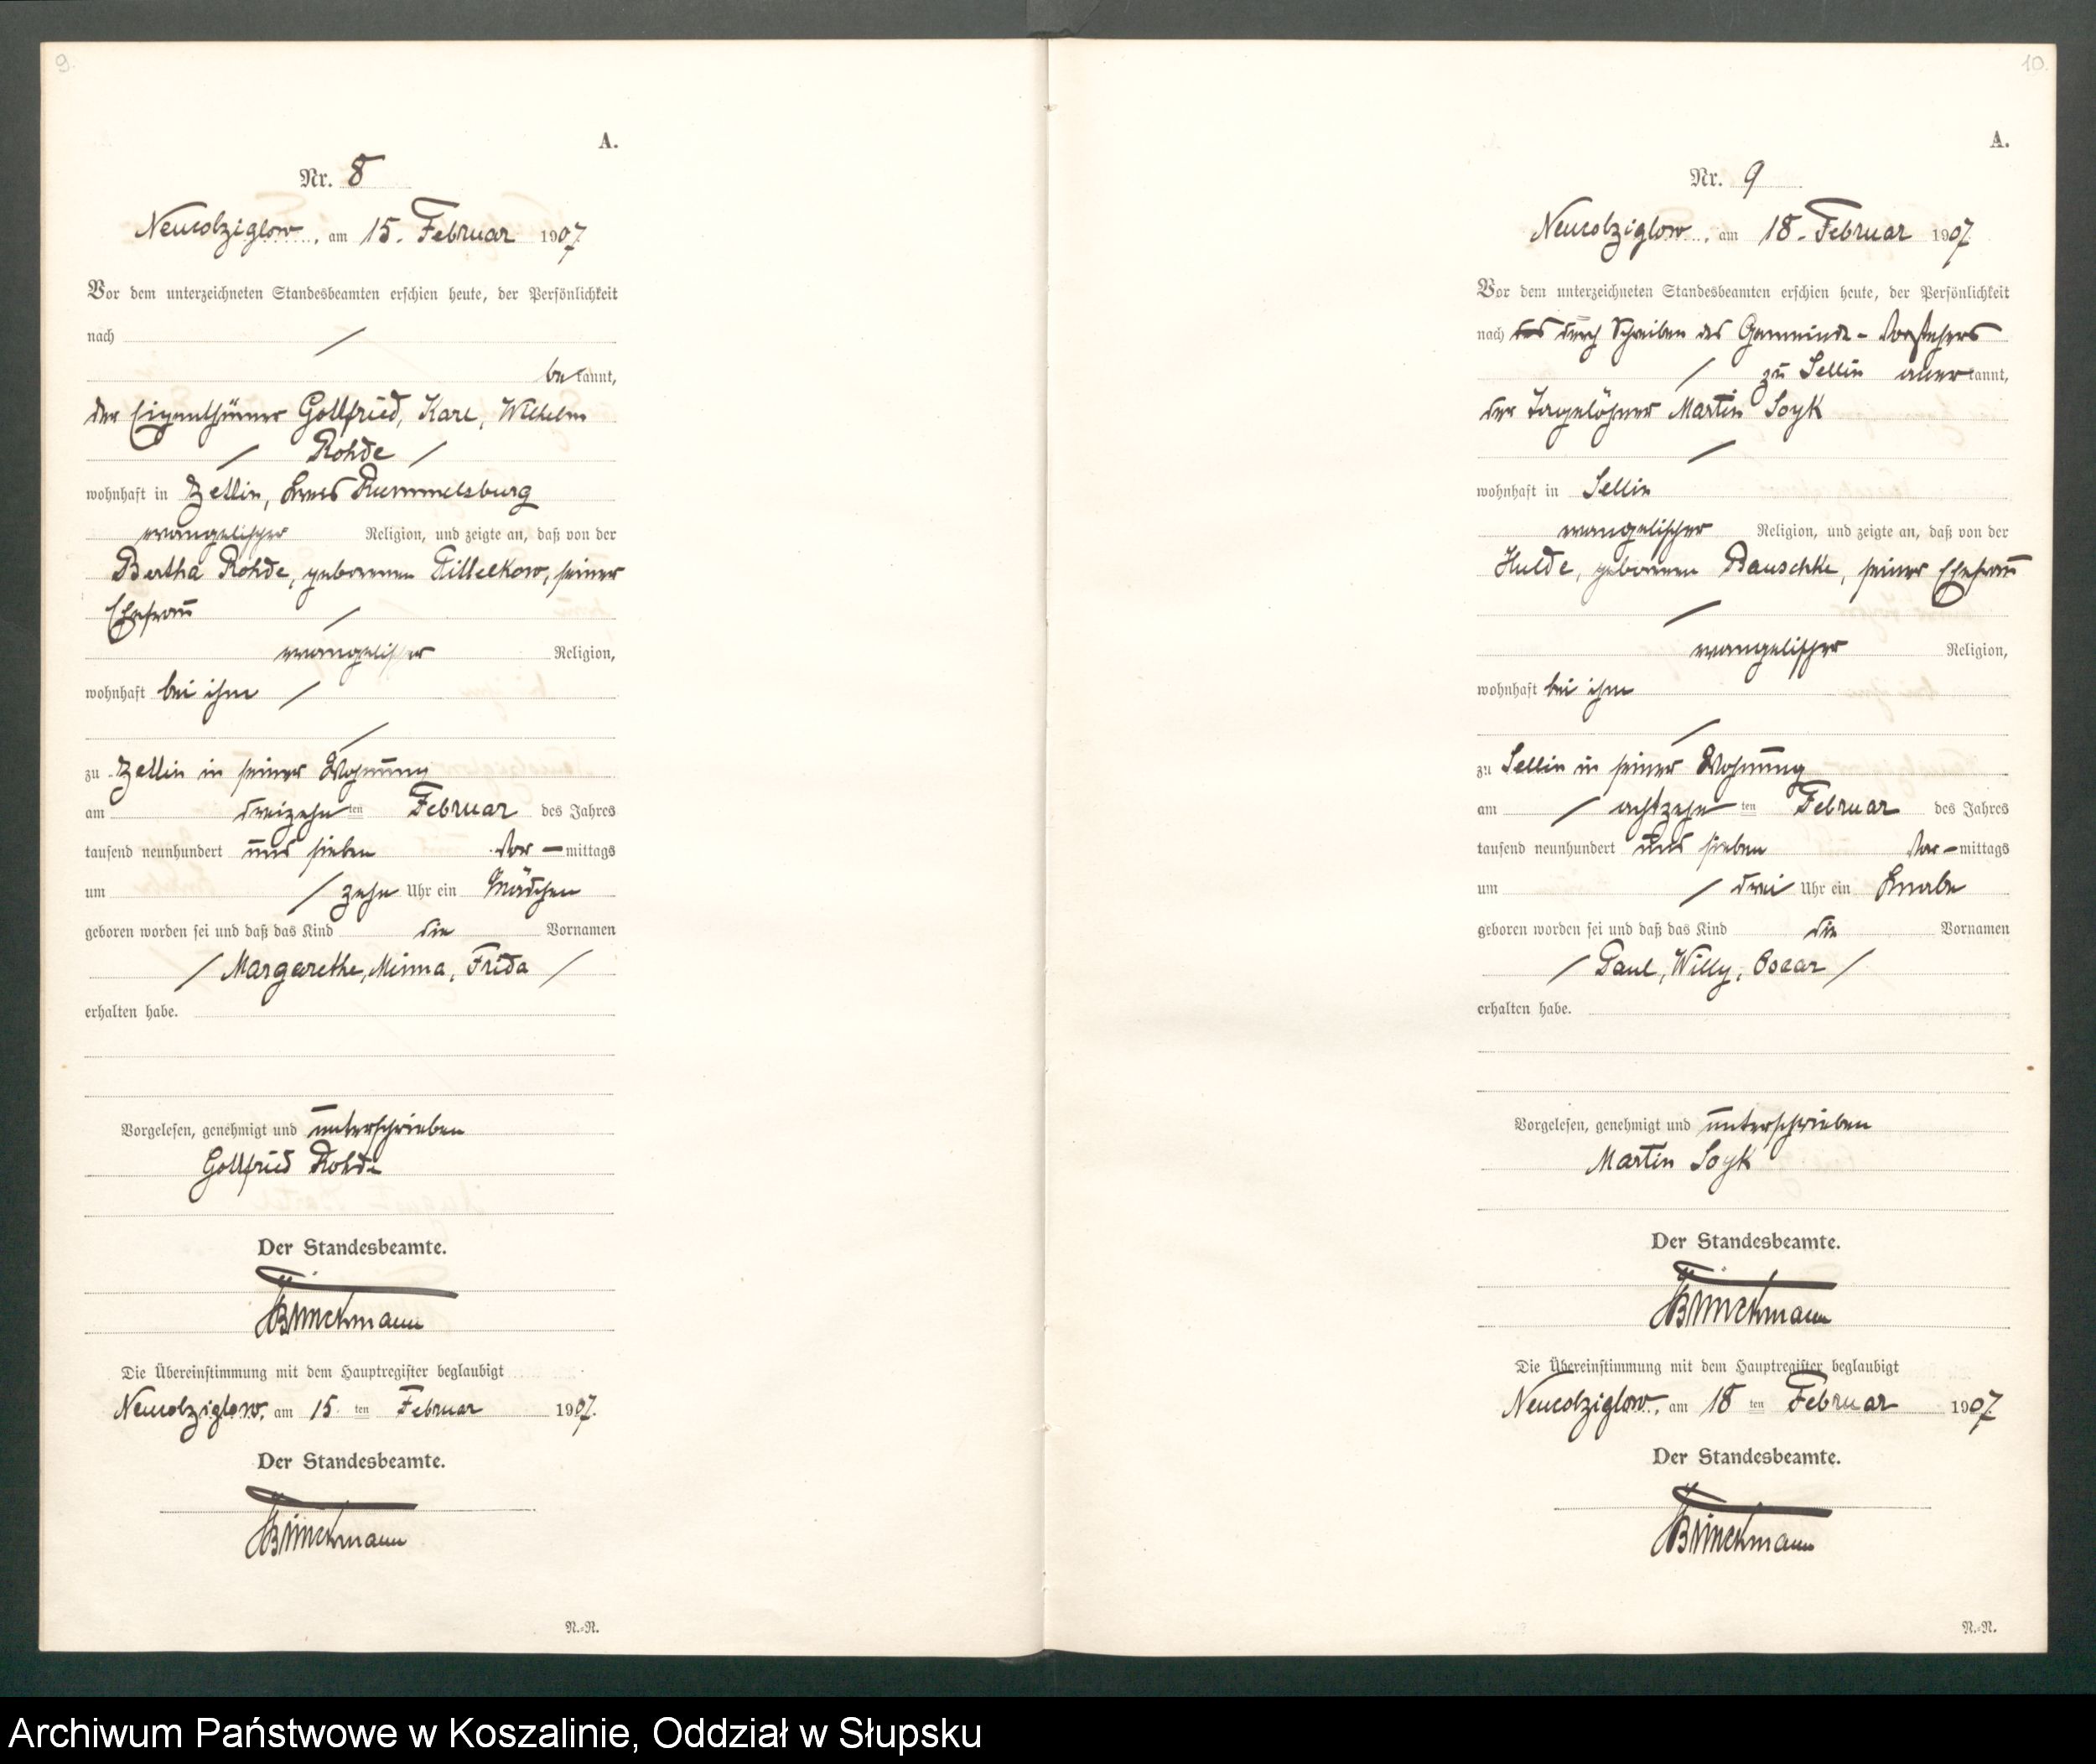 9.
A.
Nr. 8
Neucolziglow, am 15. Februar 1907
Vor dem unterzeichneten Standesbeamten erschien heute, der Persönlichkeit
nach
bekannt,
der Eigenthümer Gottfried, Karl, Wilhelm
Rohde
wohnhaft in Zettin, Kreis Rummelsburg
evangelischer Religion, und zeigte an, daß von der
Bertha Rohde, geborenen Tillekow, seiner
Ehefrau
evangelischer Religion,
wohnhaft bei ihm
zu Zettin in seiner Wohnung
am dreizehnten Februar des Jahres
tausend neunhundert und sieben Vor-mittags
um zehn Uhr ein Mädchen
geboren worden sei und daß das Kind die Vornamen
Margarethe, Minna, Frida
erhalten habe.
Vorgelesen, genehmigt und unterschrieben
Gottfried Rohde
Der Standesbeamte.
Brinckmann
Die Übereinstimmung mit dem Hauptregister beglaubigt
Neucolziglow, am 15. ten Februar 1907.
Der Standesbeamte.
Brinckmann
N.-N.
10.
A.
Nr. 9
Neucolziglow, am 18. Februar 1907
Vor dem unterzeichneten Standesbeamten erschien heute, der Persönlichkeit
nach durch Schreiben des Gemeinde-Vorstehers
zu Sellin anerkannt,
der Tagelöhner Martin Soyk
wohnhaft in Sellin
evangelischer Religion, und zeigte an, daß von der
Hulde, geborenen Pauschke, seiner Ehefrau
evangelischer Religion,
wohnhaft bei ihm
zu Sellin in seiner Wohnung
am achtzehnten Februar des Jahres
tausend neunhundert und sieben Vor-mittags
um drei Uhr ein Knabe
geboren worden sei und daß das Kind die Vornamen
Paul, Willy, Oscar
erhalten habe.
Vorgelesen, genehmigt und unterschrieben
Martin Soyk
Der Standesbeamte.
Brinckmann
Die Übereinstimmung mit dem Hauptregister beglaubigt
Neucolziglow, am 18 ten Februar 1907.
Der Standesbeamte.
Brinckmann
N.-N.
Archiwum Państwowe w Koszalinie, Oddział w Słupsku